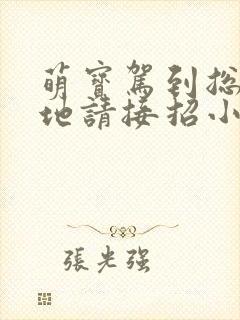 萌寳駕到总
地請接招小
張光强